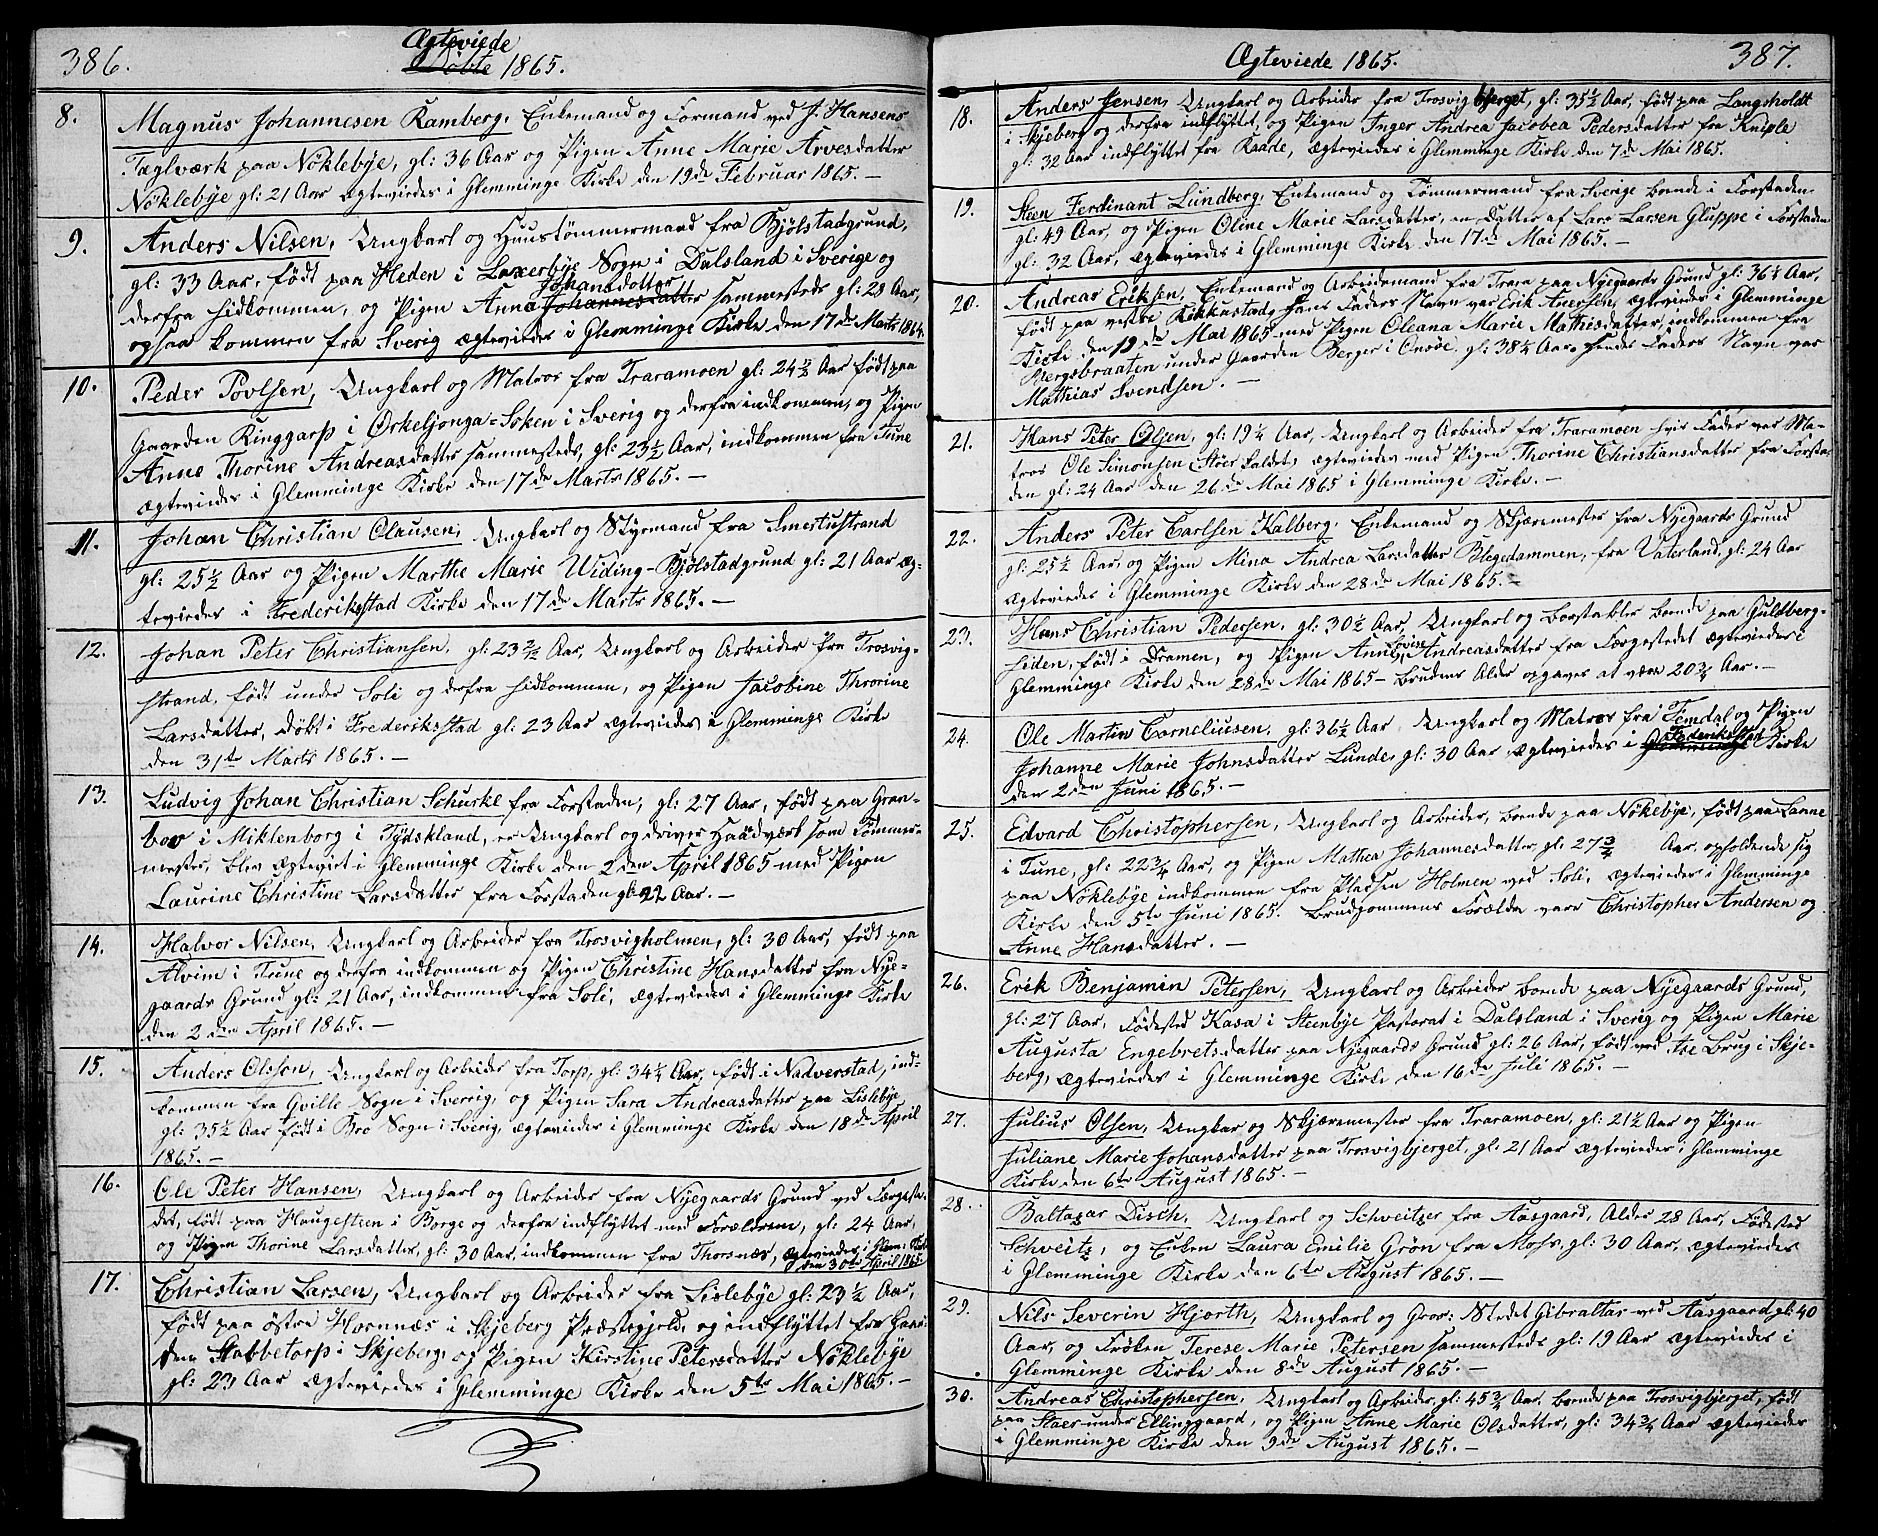 386.
Ægteviede
Døbte 1865.
8. Magnus Johannesen Ramberg, Enkemand og Formand ved J. Hansens
Tæglværk paa Nöklebye, gl: 36 Aar og Pigen Anne Marie Arvesdatter
Nöklebye gl: 21 Aar ægtevieder i Glemminge Kirke den 19de Februar 1865. —
9. Anders Nilsen, Ungkarl og Huustømmermand fra Bjölstadgrund,
gl: 33 Aar, født paa Heden i Laxerbye Sogn i Dalsland i Sverige og
Johansdatter
derfra hidkommen, og Pigen Anna Johannesdatter sammesteds gl: 28 Aar,
ogsaa kommen fra Sverig ægtevieder i Glemminge Kirke den 17de Marts 1865.
10. Peder Povlsen, Ungkarl og Matros fra Traramoen gl: 24 1/2 Aar født paa
Gaarden Ringgarp i Ørkeljonga-Soken i Sverig og derfra indkommen, og Pigen
Anne Thorine Andreasdatter sammesteds, gl: 23 1/2 Aar, indkommen fra Tune
ægtevieder i Glemminge Kirke den 17de Marts 1865. —
11. Johan Christian Clausen, Ungkarl og Styrmand fra Smertustrand
gl: 25 1/2 Aar og Pigen Marthe Marie Widing-Bjölstadgrund gl: 21 Aar æg-
tevieder i Frederiksstad Kirke den 17de Marts 1865. —
12. Johan Peter Christiansen, gl: 23 1/2 Aar, Ungkarl og Arbeider fra Trosvig-
strand, født under Soli og derfra hidkommen, og Pigen Jacobine Throrine
Larsdatter, døbt i Frederiksstad gl: 23 Aar ægtevieder i Glemminge Kirke
den 31te Marts 1865. —
13. Ludvig Johan Christian Schurke fra Forstaden, gl: 27 Aar, født paa Gran-
bov i Miklenborg i Tydskland, er Ungkarl og driver Haandværk som Tømmer-
mester, blev ægteviet i Glemminge Kirke den 2den April 1865 med Pigen
Laurine Christine Larsdatter fra Forstaden gl: 22 Aar. —
14. Halvor Nilsen, Ungkarl og Arbeider fra Trosvigholmen, gl: 30 Aar, født paa
Alvim i Tune og derfra indkommen og Pigen Christine Hansdatter fra Nye-
gaards Grund gl: 21 Aar, indkommen fra Soli, ægtevieder i Glemminge Kirke
den 2den April 1865. —
15. Anders Olsson, Ungkarl og Arbeider fra Torp, gl: 34 1/4 Aar, født i Nadverstad, ind-
kommen fra Qville Sogn i Sverrig, og Pigen Sara Andreasdatter paa Lislebye
gl: 35 1/2 Aar født i Bro Sogn i Sverig, ægtevieder i Glemminge Kirke den 18de April
1865. —
16. Ole Peter Hansen, Ungkarl og Arbeider fra Nyegaards Grund ved Færgesta-
det, født paa Haugesteen i Borge og derfra indflyttet med Forældrene, gl: 24 Aar,
og Pigen Thorine Larsdatter, gl: 30 Aar, indkommen fra Thorsnæs, ægtevieder i Glem: Kirke
den 30te April 1865
17. Christian Larsen, Ungkarl og Arbeider fra Lislebye gl: 23 1/2 Aar,
født paa østre Hornnæs i Skjeberg Præstegjeld, og indflyttet fra Gaar-
den Stabbetorp i Skjeberg, og Pigen Kirstine Petersdatter Nöklebye
gl: 23 Aar ægtevieder i Glemminge Kirke den 5te Mai 1865. —
Ægteviede 1865.
387.
18. Anders Jensen, Ungkarl og Arbeider fra Trosvigbjerget, gl: 35 1/2 Aar, født paa Langsholdt
i Skjeberg og derfra indflyttet, og Pigen Inger Andrea Jacobea Pedersdatter fra Kniple
gl: 32 Aar indflyttet fra Raade, ægtevieder i Glemminge Kirke den 7de Mai 1865.
19. Steen Ferdinant Lundberg, Enkemand og Tømmermand fra Sverige boende i Forstaden
gl: 49 Aar, og Pigen Oline Marie Larsdatter, en Datter af Lars Larsen Gluppe i Forstaden
gl: 32 Aar, ægtevieder i Glemminge Kirke den 17de Mai 1865. —
20. Andreas Eriksen, Enkemand og Arbeidsmand fra Trara paa Nyegaards Grund gl: 36 1/2 Aar,
født paa vestre Kikkustad, hans Faders Navn var Erik Andersen, ægtevieder i Glemminge
Kirke den 19de Mai 1865 med Pigen Oleana Marie Mathisdatter, indkommen fra
Bergsbraaten under Gaarden Berger i Onsöe, gl: 38 1/4 Aar, hendes Faders Navn var
Mathias Svendsen. —
21. Hans Peter Olsen, gl: 19 1/4 Aar, Ungkarl og Arbeider fra Traramoen hvis Fader var Ma-
tros Ole Simonsen Stöer kaldet, ægtevieder med Pigen Thorine Christiansdatter fra Forsta-
den gl: 24 Aar den 26de Mai 1865 i Glemminge Kirke. —
22. Anders Peter Carlsen Kalberg, Enkemand og Skjæremester fra Nyegaards Grund
gl: 25 1/2 Aar, og Pigen Mina Andrea Larsdatter Blegedammen, fra Vaterland, gl: 24 Aar
ægtevieder i Glemminge Kirke den 28de Mai 1865. —
23. Hans Christian Pedersen, gl: 30 1/2 Aar, Ungkarl og Bordstabler boende paa Guldberg-
Lovise
siden, født i Dramen, og Pigen Anne Andreasdatter fra Færgestedet ægtevieder i
Glemminge Kirke den 28de Mai 1865 — Brudens Alder opgaves at være 20 3/4 Aar. —
24. Ole Martin Corneliusen, gl: 36 1/2 Aar, Ungkarl og Matros fra Femdal og Pigen
Frederiksstad
Johanne Marie Johnsdatter Lunde, gl: 30 Aar ægtevieder i Glemminge Kirke
den 2den Juni 1865. —
25. Edvard Christophersen, Ungkarl og Arbeider, boende paa Nökebye, født paa Lanne
i Tune, gl: 22 3/4 Aar, og Pigen Mathea Johannesdatter, gl: 27 3/4 Aar, opholdende sig
paa Nöklebye indkommen fra Pladsen Holmen ved Soli, ægtevieder i Glemminge
Kirke den 5te Juni 1865. Brudgommens Forældre vare Christopher Andersen og
Anne Hansdatter. —
26. Erik Benjamin Petersen, Ungkarl og Arbeider boende paa Nyegaards Grund,
gl: 27 Aar, Fødested Kasa i Steenbye Pastorat i Dalsland i Sverig og Pigen Marie
Augusta Engebretsdatter paa Nyegaards Grund gl: 26 Aar, født ved Ise Brug i Skje-
berg, ægtevieder i Glemminge Kirke den 16de Juli 1865. —
27. Julius Olsen, Ungkar og Skjæremester fra Traramoen, gl: 21 1/2 Aar og Pigen
Juliane Marie Johansdatter paa Trosvigbjerget, gl: 21 Aar ægtevieder i Glemminge
Kirke den 6te August 1865. —
28. Baltazar Disch, Ungkarl og Schveitzer fra Aasgaard, Alder 28 Aar, Fødested
Schveitz, og Enken Laura Emilie Grøn fra Moss, gl: 30 Aar, ægtevieder
i Glemminge Kirke den 6te August 1865. —
29. Nils Severin Hjorth, Ungkarl og Gros: Stedet Gibraltar ved Aasgaard gl: 40
Aar, og Frøken Terese Marie Petersen sammesteds gl: 19 Aar ægtevieder i
Glemminge Kirke den 8de August 1865. —
30. Andreas Christophersen, Ungkarl og Arbeider, gl: 45 3/4 Aar boende paa Trosvigbjerget, født
paa Staer under Ellinggaard, og Pigen Anne Marie Olsdatter, gl: 34 3/4 Aar ægtevieder
i Glemminge Kirke den 9de August 1865. —